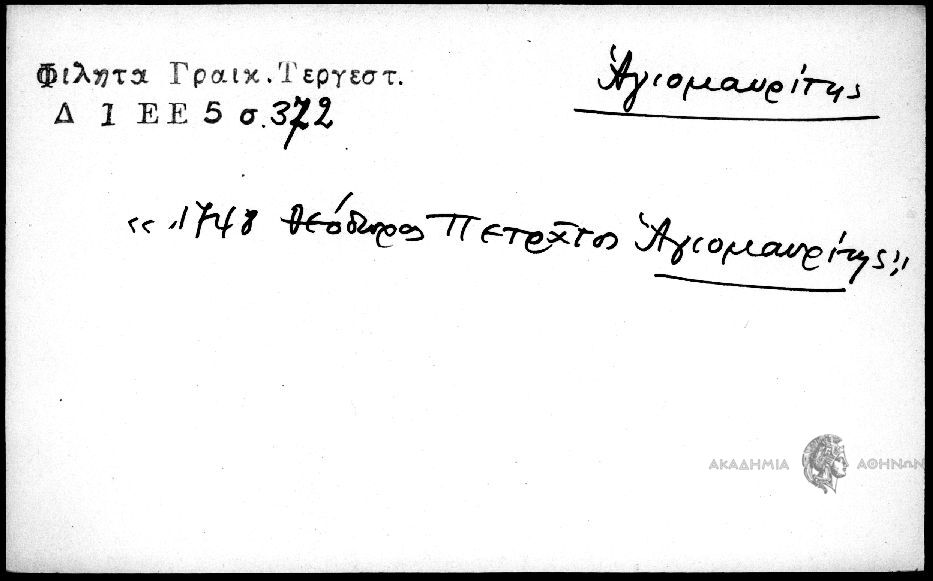 Φιλητα Γραικ. Τεργεστ.
Δ 1 ΕΕ 5 σ. 372
Ἁγιομαυρίτης
«1748 Θεόδωρος Πετρᾶτος Ἁγιομαυρίτης»
ΑΚΑΔΗΜΙΑ ΑΘΗΝΩΝ